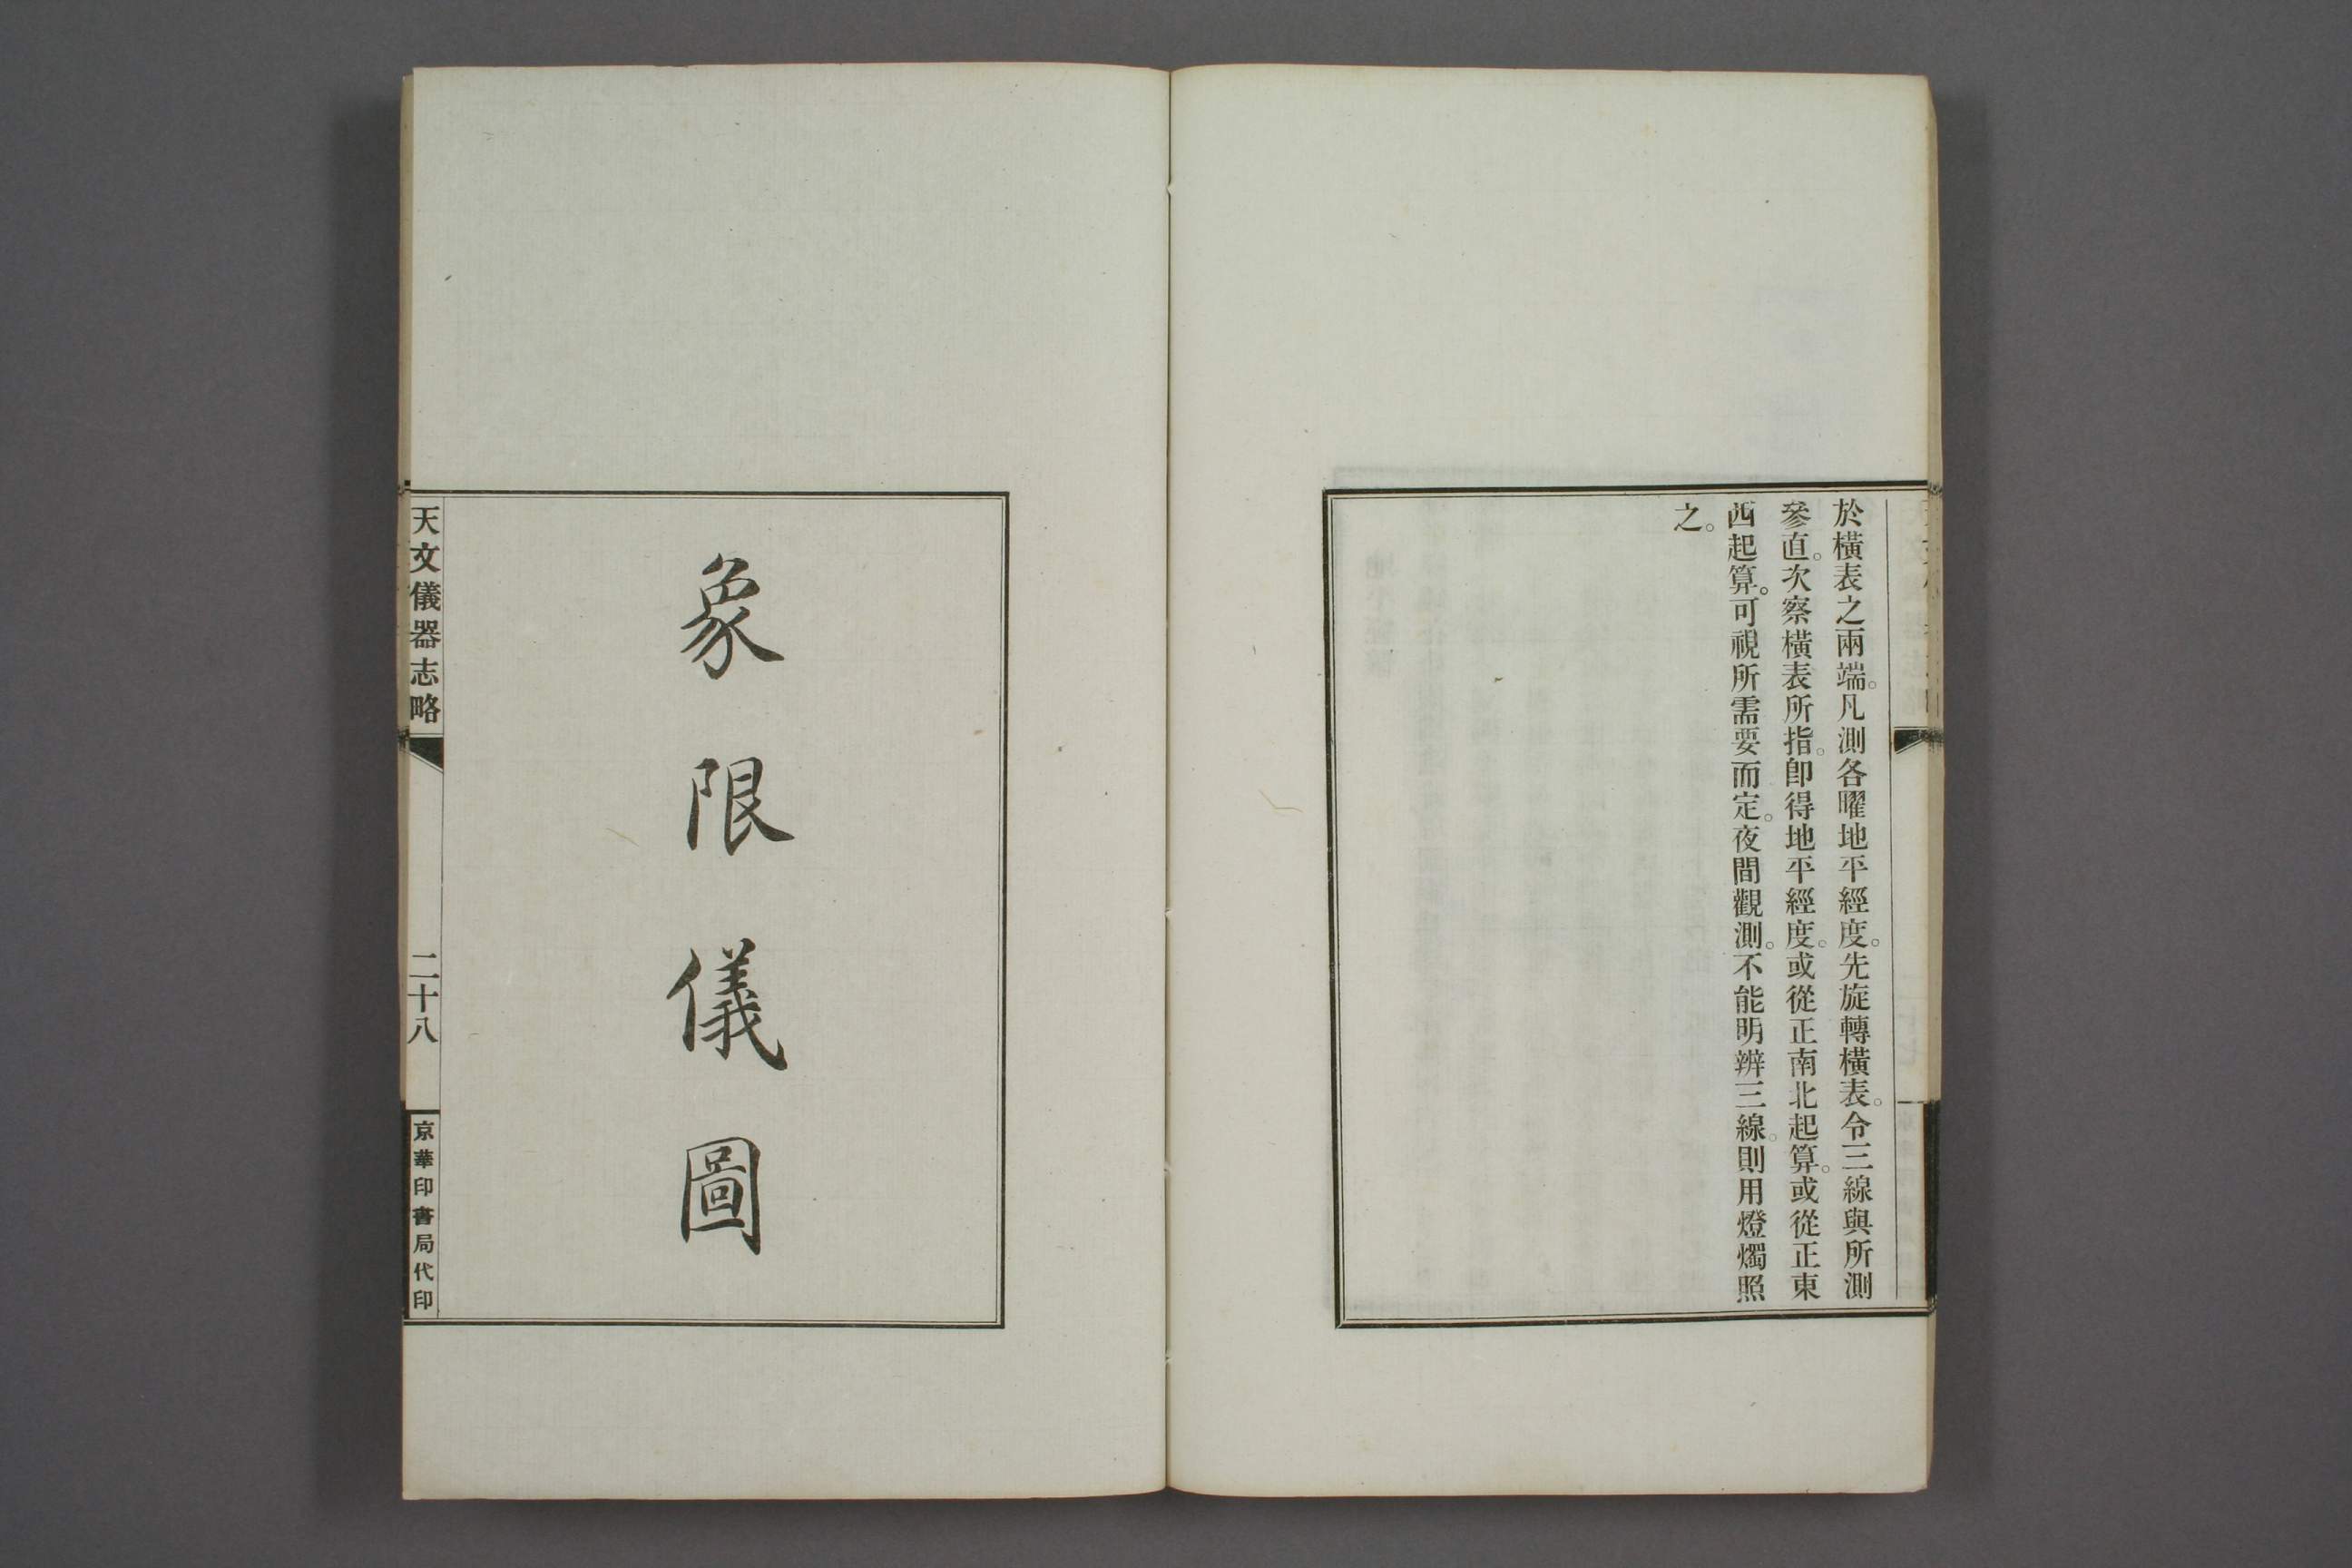 於橫表之兩端。凡測各曜地平經度。先旋轉橫表。令三線與所測
參直。次察橫表所指。卽得地平經度。或從正南北起算。或從正東
西起算。可視所需要而定。夜間觀測。不能明辨三線。則用燈燭照
之。
象限儀圖
天文儀器志略
二十八
京華印書局代印